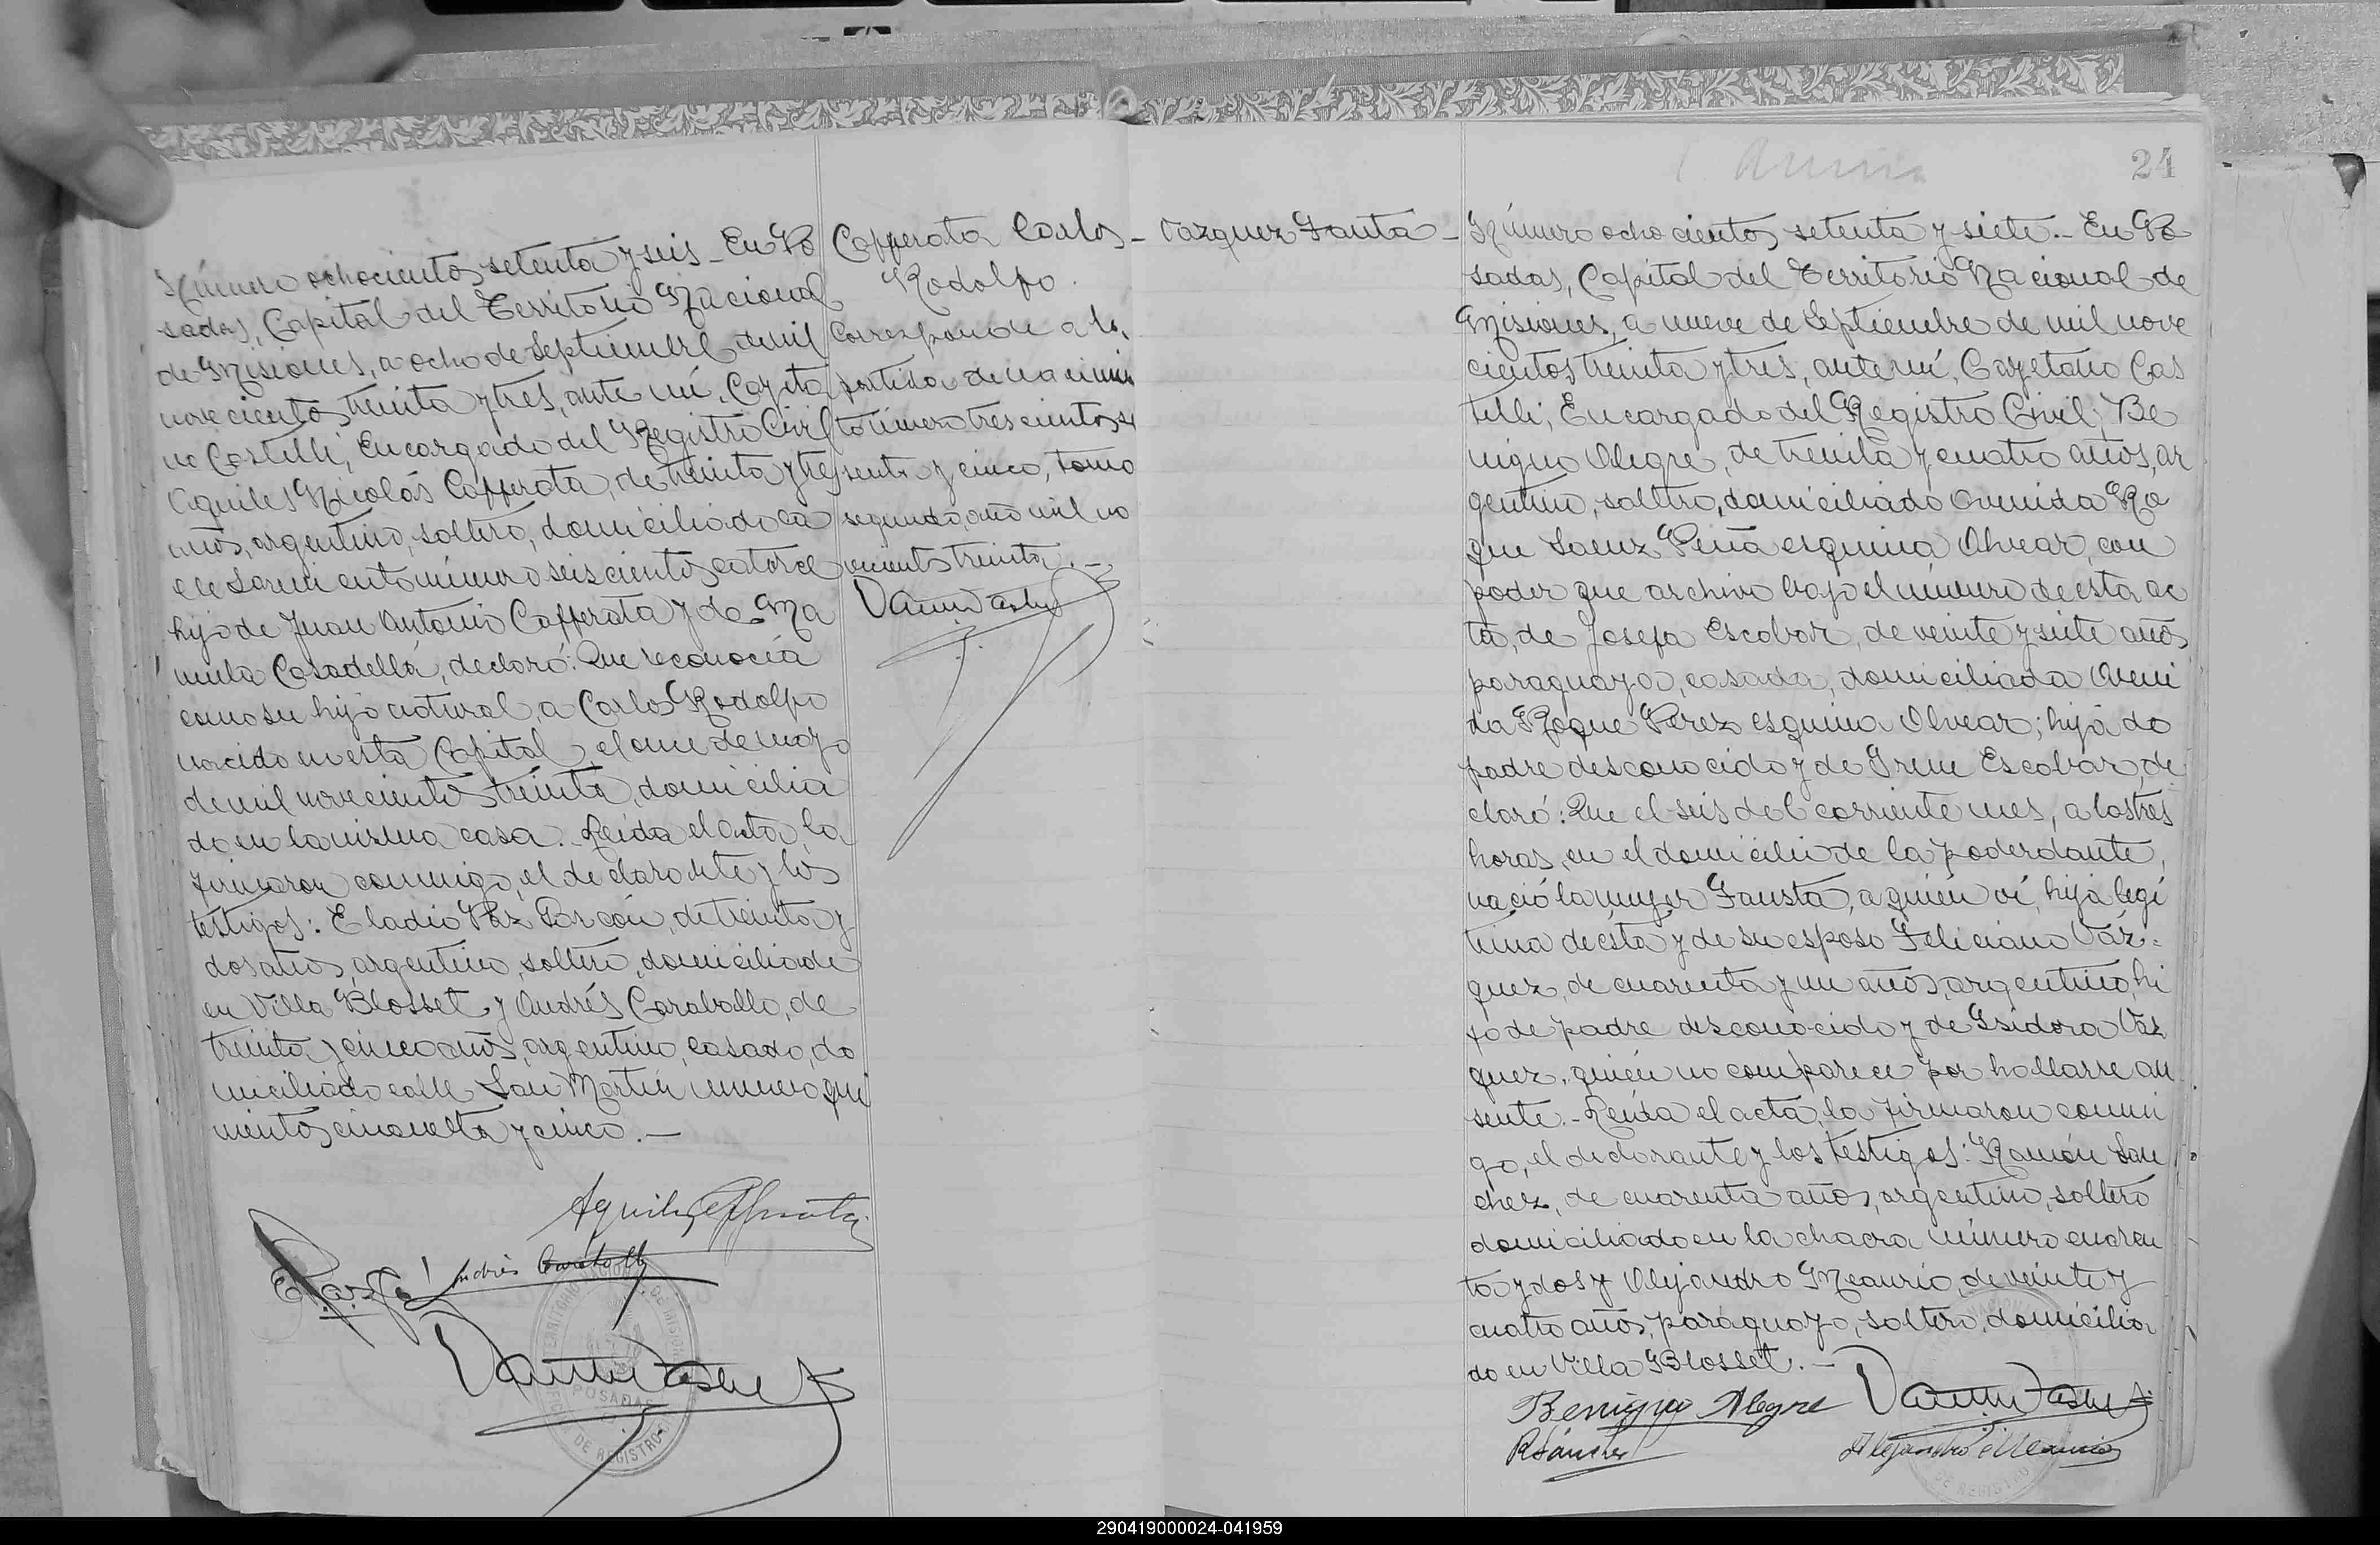 Número ochocientos setenta y seis._ En Po
sadas, Capital del Territorio Nacional
de Misiones, a ocho de Septiembre de mil
novecientos treinta y tres, ante mí, Cayeta
no Castelli, Encargado del Registro Civil
Aquiles Nicolás Cafferata, de treinta y tres
años, argentino, soltero, domiciliado ca
lle Sarmiento número seiscientos catorce
hijo de Juan Antonio Cafferata y de Ma
nuela Casadellá, declaró: Que reconocía
como su hijo natural, a Carlos Rodolfo
nacido en esta Capital, el once de mayo
de mil novecientos treinta, domicilia
do en la misma casa._ Leída el acta, la
firmaron conmigo, el declarante y los
testigos: Eladio Paz Garcón, de treinta y
dos años, argentino, soltero, domiciliado
en Villa Blosset y Andrés Caraballo, de
treinta y cinco años, argentino, casado, do
miciliado calle San Martín número qui
nientos cincuenta y cinco._
Cafferata Carlos
Rodolfo.
Corresponde a la
partida de nacimien
to número trescientos se
senta y cinco, tomo
segundo año mil no
vecientos treinta._
Andrés Caraballo
TERRITORIO NACIONAL DE MISIONES
POSADAS
DE REGISTRO
24
Vázquez Fausta
Número ochocientos setenta y siete._ En Po
sadas, Capital del Territorio Nacional de
Misiones, a nueve de Septiembre de mil nove
cientos treinta y tres, ante mí, Cayetano Cas
telli, Encargado del Registro Civil, Be
nigno Alegre, de treinta y cuatro años, ar
gentino, soltero, domiciliado Avenida Ro
que Saenz Peña esquina Alvear, con
poder que archivo bajo el número de esta ac
ta, de Josefa Escobar, de veinte y siete años
paraguaya, casada, domiciliada Aveni
da Roque Perez esquina Alvear; hija de
padre desconocido y de Irene Escobar, de
claró: Que el seis del corriente mes, a las tres
horas, en el domicilio de la poderdante,
nació la mujer Fausta, a quién ví, hija legí
tima de ésta y de su esposo Feliciano Váz-
quez, de cuarenta y un años, argentino, hi
jo de padre desconocido y de Isidora Váz
quez, quién no comparece por hallarse au
sente._ Leída el acta, la firmaron conmi
go, el declarante y los testigos: Ramón San
chez, de cuarenta años, argentino, soltero
domiciliado en la chacra número cuaren
ta y dos y Alejandro Meaurio, de veinte y
cuatro años, paraguayo, soltero, domicilia
do en Villa Blosset._
Benigno Alegre
R Sánchez
Alejandro Meaurio
DE REGISTRO
290419000024-041959